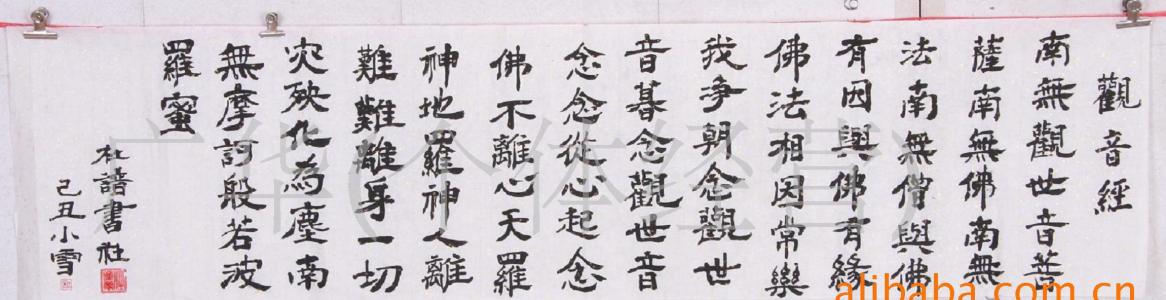 觀音經
南無觀世音菩
薩南無佛南無
法南無僧與佛
有因與佛有緣
佛法相因常樂
我淨朝念觀世
音暮念觀世音
念念從心起念
佛不離心天羅
神地羅神人離
難難離身一切
灾殃化為塵南
無摩訶般若波
羅蜜
書社
己丑小雪
广华(个体经营)
alibaba.com.cn